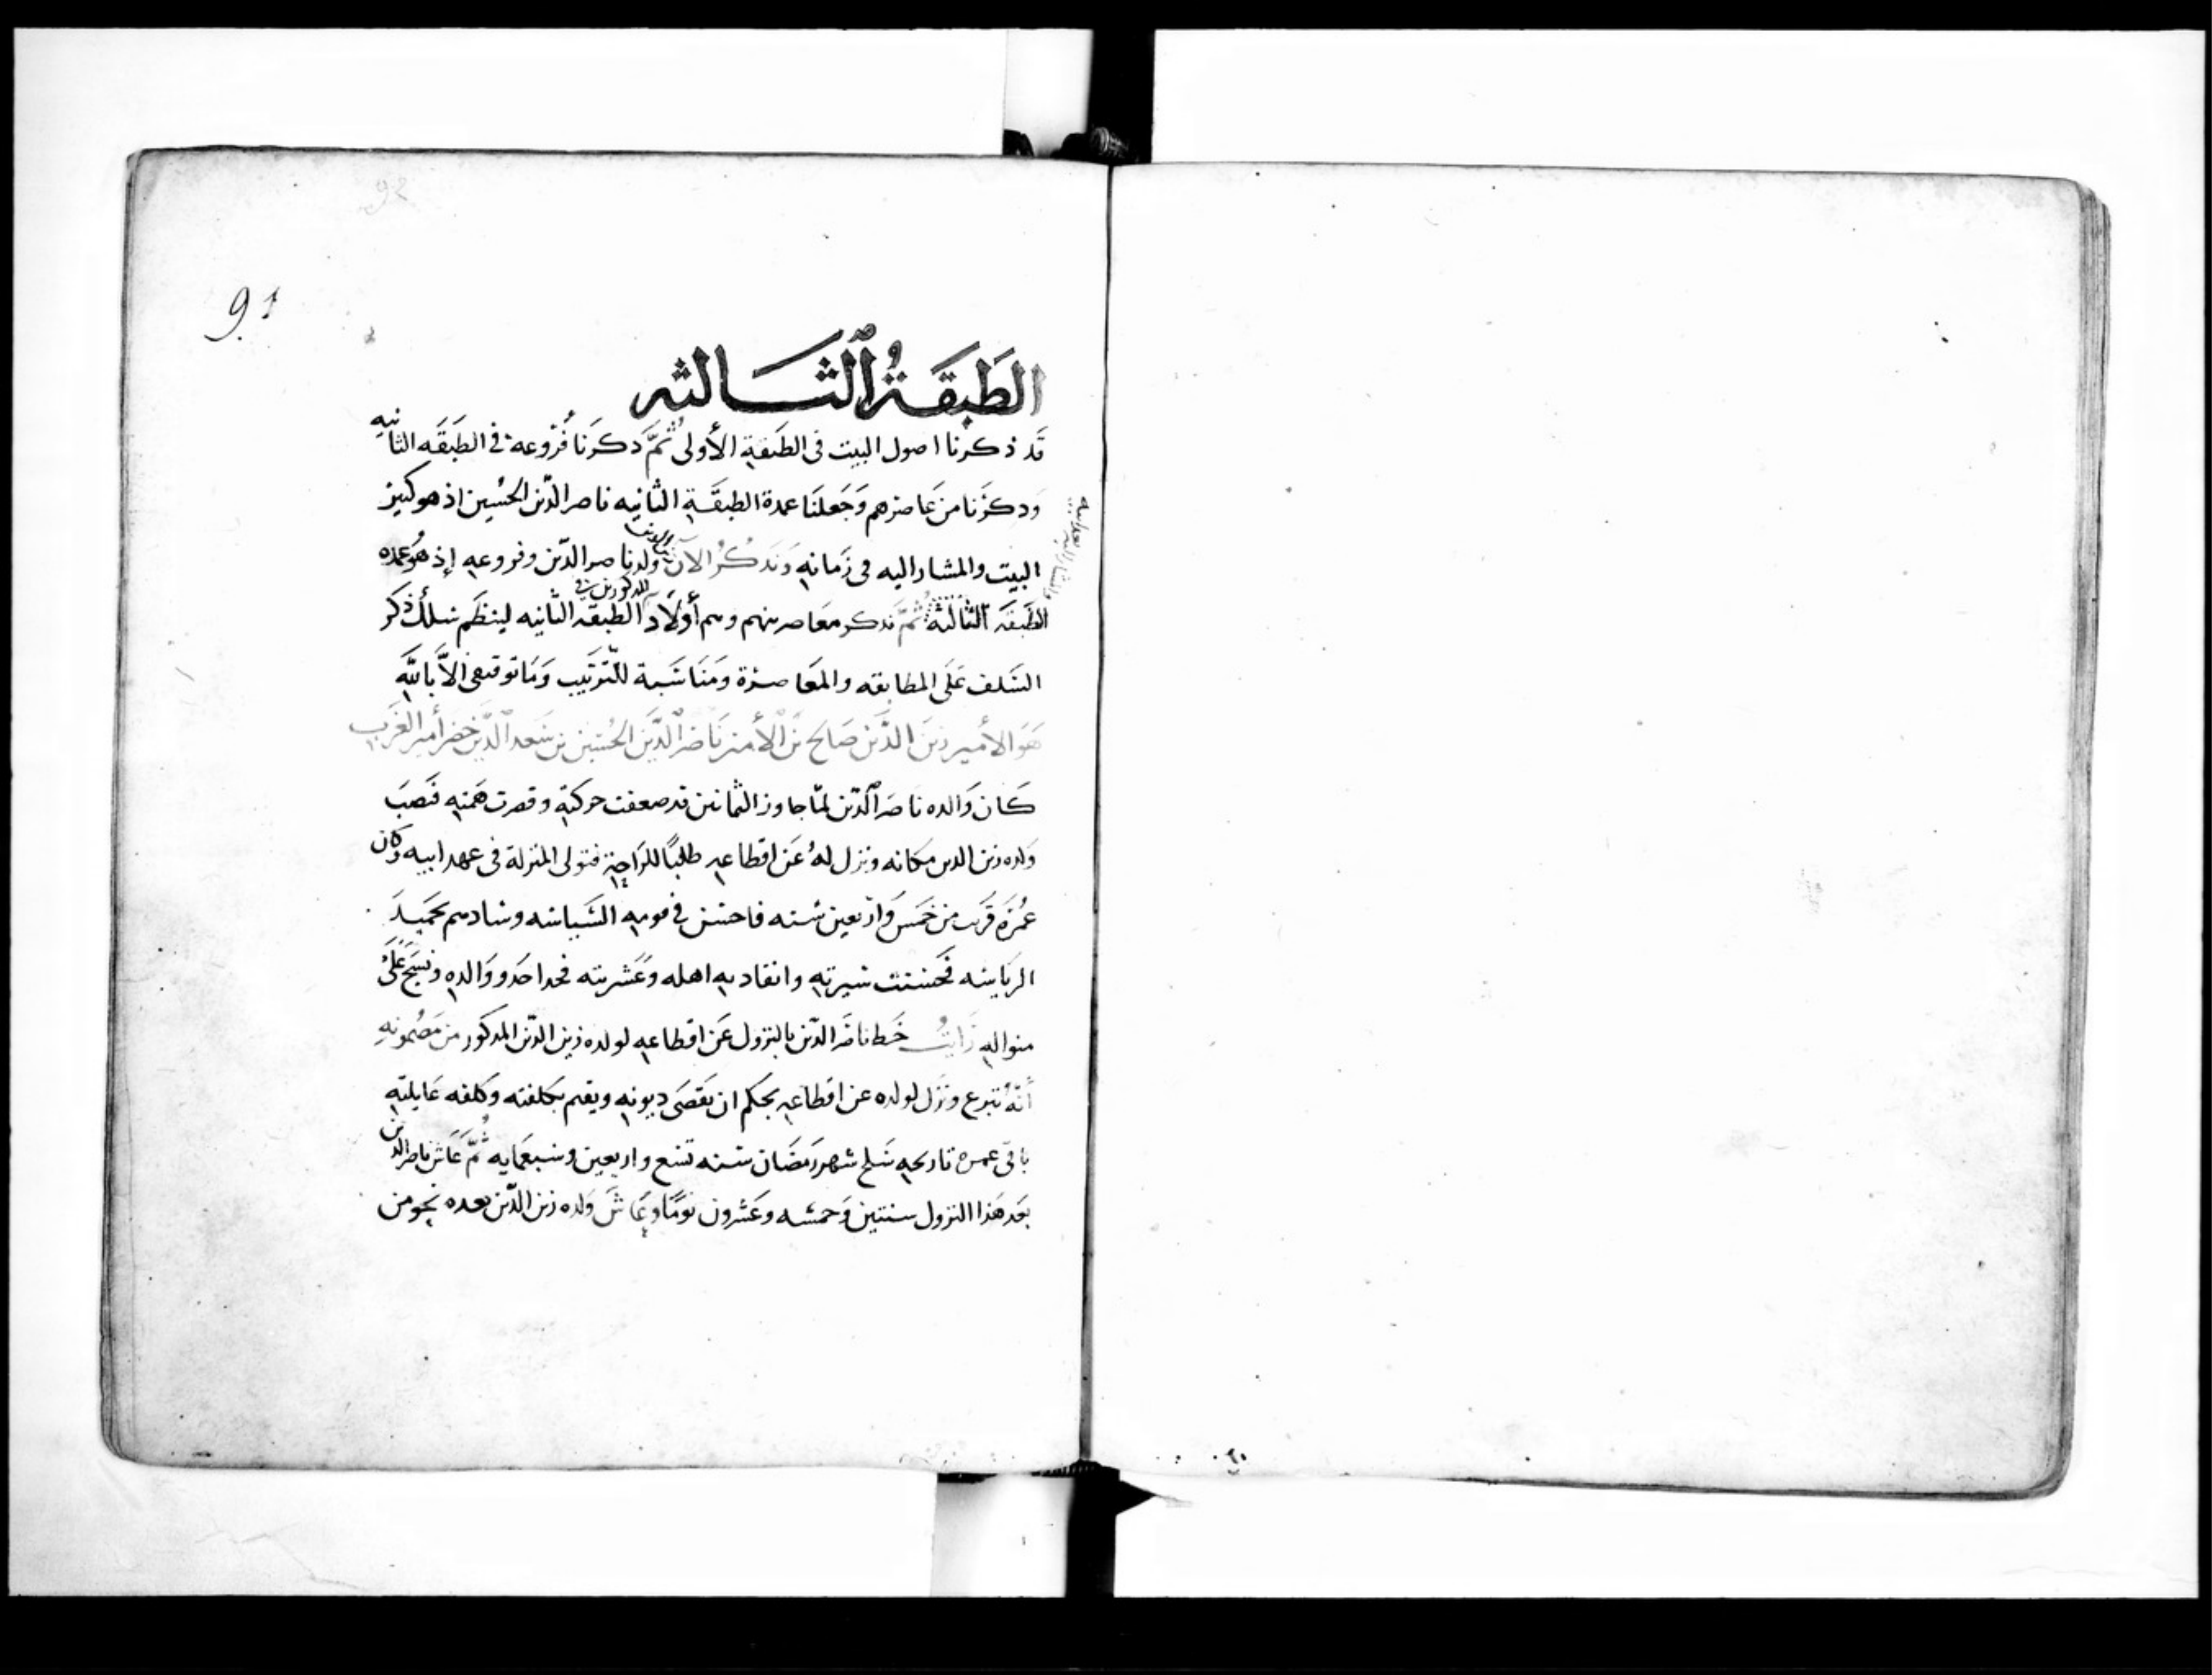 92
91
الطَبَقَةُ ٱلثَالثه
قَد ذكرنا اصول البيت فى الطَبَقةِ الأولى ثُمَّ ذكَرنا فُرُوعهُ فى الطَبَقَه الثانيه
وَذكَرْنا من عَاصرهم وَجَعلنَا عمدة الطبقَةِ الثانِيه ناصر الدّين الحسُين اذ هو كبيرُ
البيت والمشار اليه فى زَمانهِ وَنَذكُرُ الآن زين الدين ولد ناصر الدّين وفروعهِ إذ هُوَ عمده
الطَبقَه الثَالثَة ثُمَّ نَذكر مَعَاصرينهم وهم أَوْلَاد المذكورين فى الطبقَه الثانيه لينتظَم سلك ذكر
السَلف عَلَى المطابقه والمعَاصرَة ومَنَاسَبة للّترَتيب وَمَا توفيقى الاَّ بالله
هَوَ الأمير زين الدَّين صَالح بن الأمير نَاصر الدَّين الحُسَين بن سَعد الدَّين خضر أمير الغَرب
كَان وَالده ناصر ٱلدّين لمّا جاوز الثمانين قد ضعفت حركته وقصرت همّته فنَصَبَ
وَلده زين الدين مكانه ونزل لهُ عَن اقطاعهِ طلبًا للرَاحةِ فتولى المنزلة فى عهد ابيه وكان
عُمرَه قَريب من خَمسَ وَاربعين سنه فاحسَن فى قومهِ السَياسَه وسادهم بحَميد
الريَاسَه فحَسنت سَيرته وانقاد بهِ اهله وعَشَريته فحدا حَدو وَالدهِ ونسَج عَلَى
منواله رَايتُ خَط ناصَر الدّين بالنزول عَن اقطاعهِ لولده زين الدّين المذكور من مَضمونهِ
أنّهُ تبرع ونَزل لولده عن اقطاعهِ بحكم ان يَقضَى ديونهِ ويقم بكلفته وكلفه عَايلتهِ
باقى عمره تاريخهِ سَلخ شهر رَمضَان سَنه تسَع واربعين وسَبعمَايه ثُمَّ عَاش ناصر الدين
بَعَد هَذا النزول سنتين وَخمسَه وعَشرون يَومًا وعَاش وَلده زين الدّين بعده نحو من